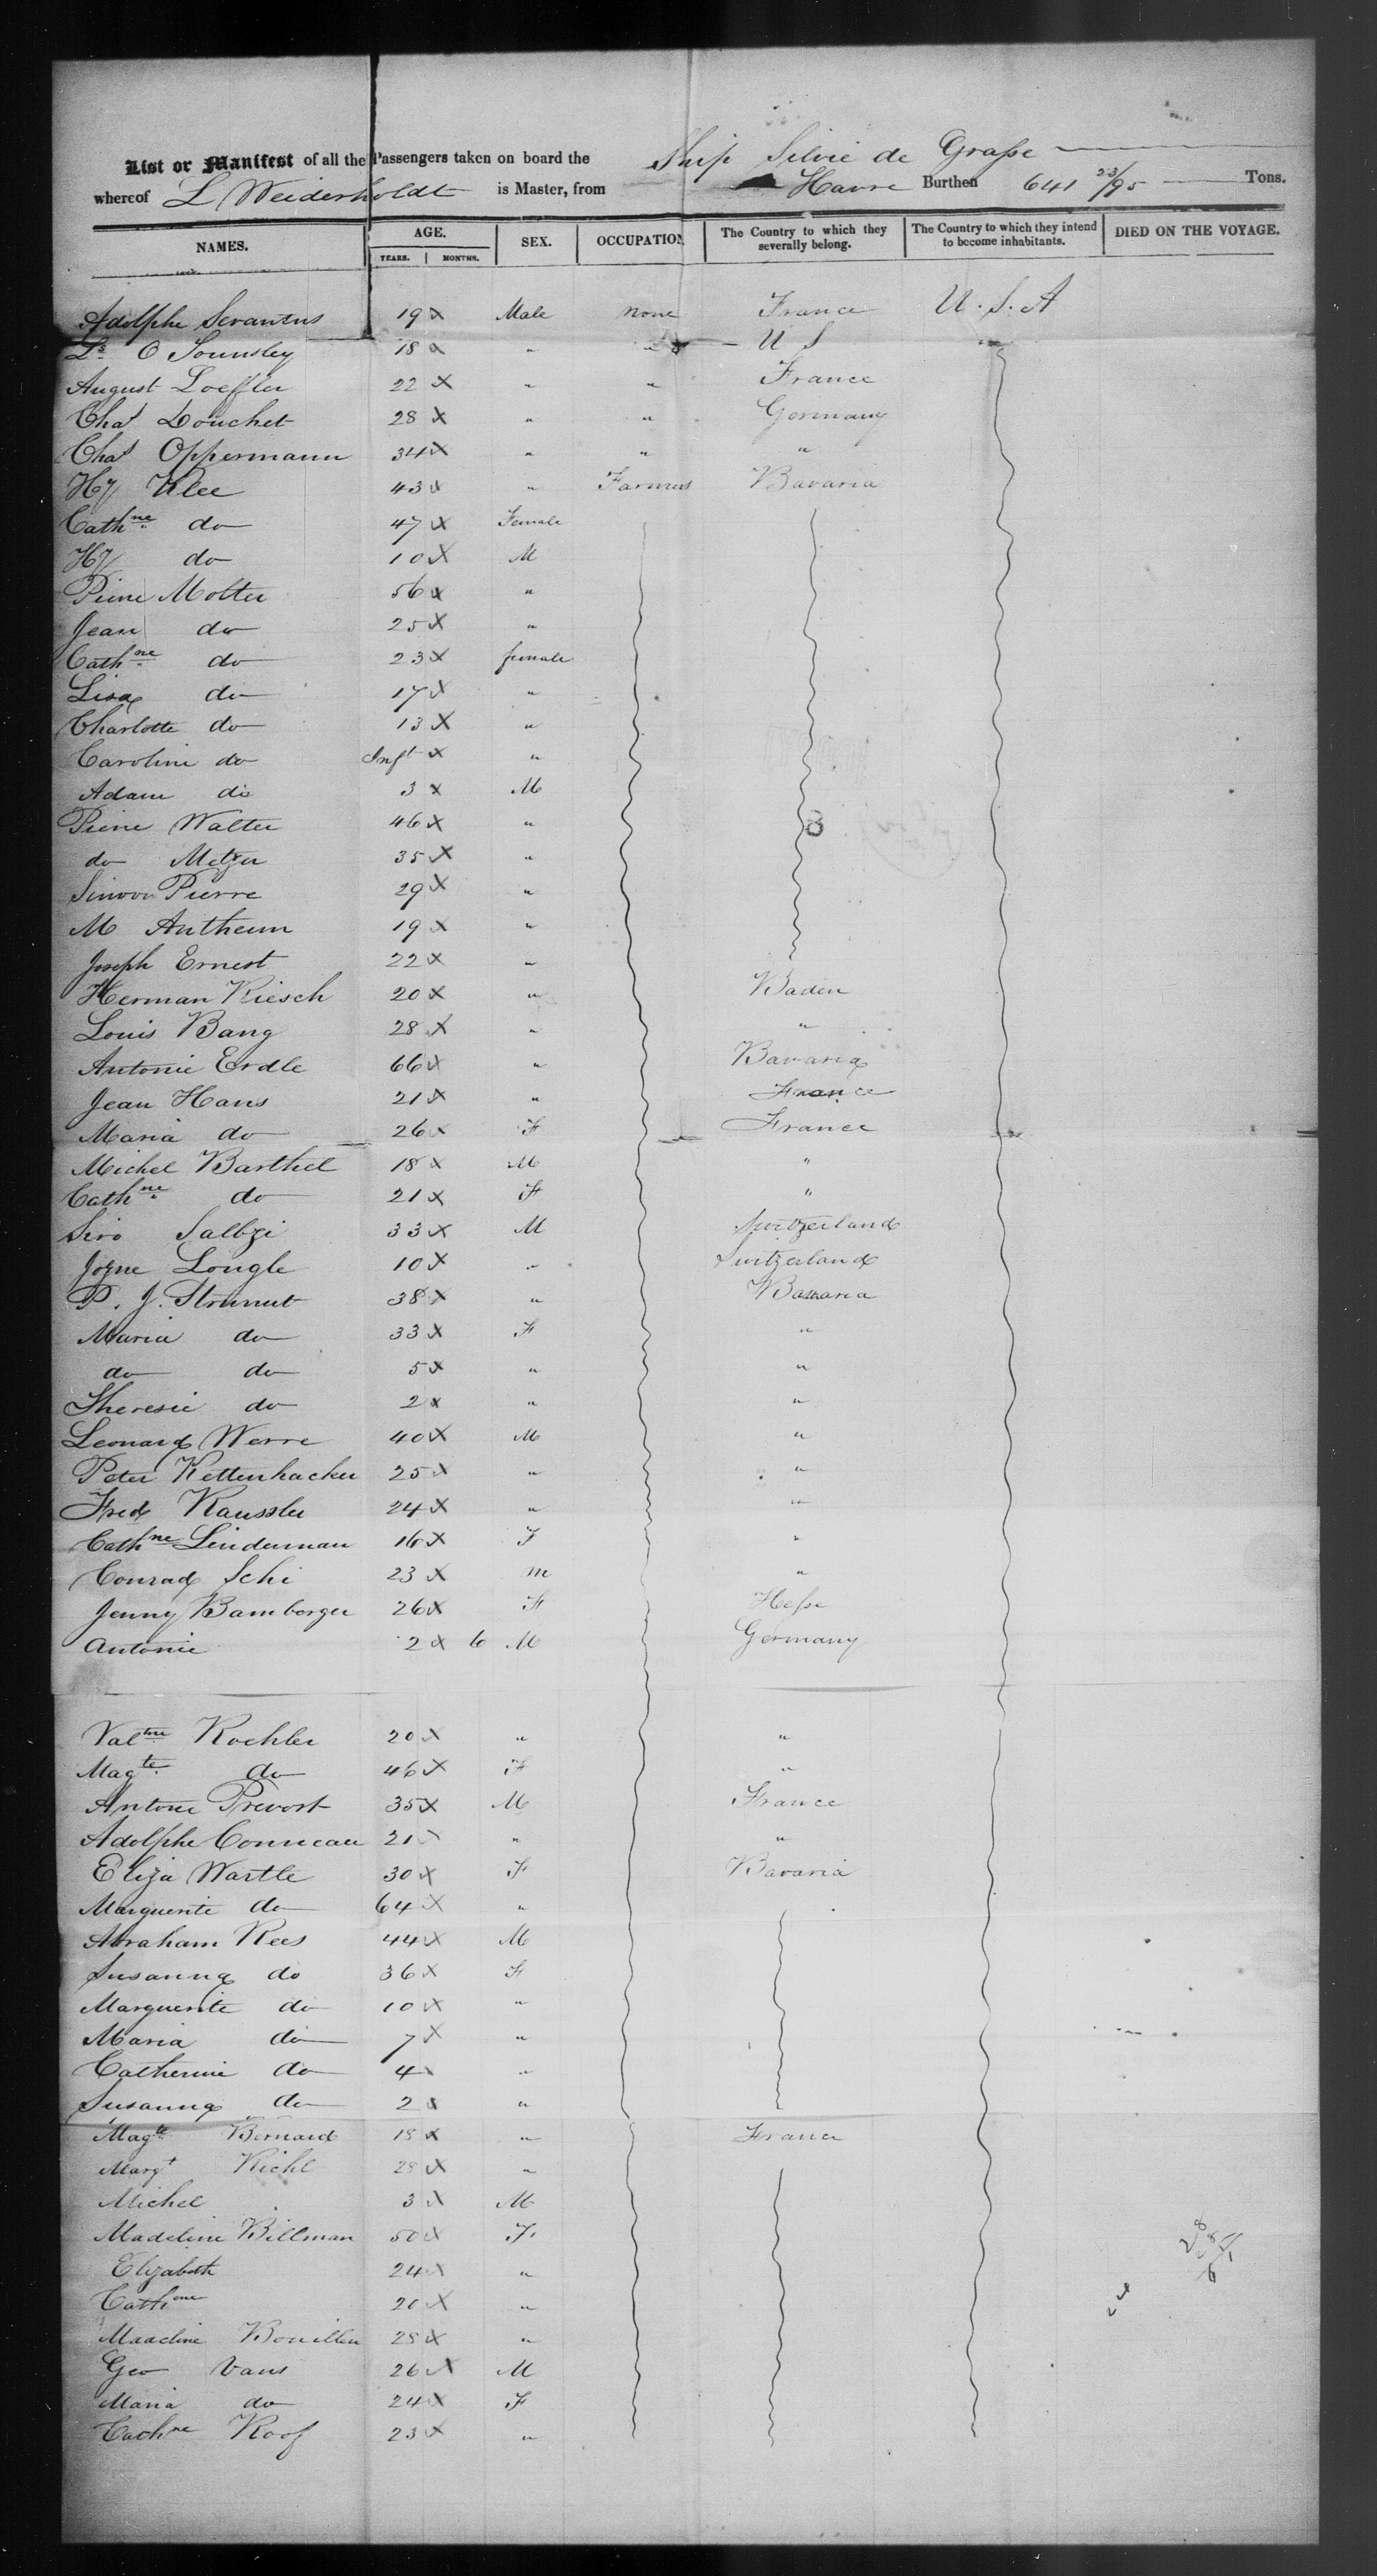 List or Manifest of all the Passengers taken on board the Ship Silvie de Grasse
whereof L Weiderholdt is Master, from Havre Burthen 641 23/95 Tons.
NAMES. AGE. YEARS. MONTHS. SEX. OCCUPATION The Country to which they severally belong. The Country to which they intend to become inhabitants. DIED ON THE VOYAGE.
Adolphe Servantus 19 x Male none France U.S.A
Ls O Sounsley 18 x " " U S
August Loeffler 22 x " " France
Chas Louchet 28 x " " Germany
Chas Oppermann 34 x " " "
Hy Klee 43 x " Farmers Bavaria
Cathne do 47 x Female
Hy do 10 x M
Pierre Molter 56 x "
Jean do 25 x "
Cathne do 23 x female
Lisa do 17 x "
Charlotte do 13 x "
Caroline do Inft x "
Adam do 3 x M
Pierre Walter 46 x "
do Metzer 35 x "
Simon Pierre 29 x "
M Antheun 19 x "
Joseph Ernest 22 x "
Herman Kiesch 20 x " Baden
Louis Bang 28 x " "
Antonie Erdle 66 x " Bavaria
Jean Hans 21 x " France
Maria do 26 x F France
Michel Barthel 18 x M "
Cathne do 21 x F "
Siro Salbzi 33 x M Switzerland
Jozne Longle 10 x " Switzerland
P. J. Strunut 38 x " Bavaria
Maria do 33 x F "
do do 5 x " "
Theresie do 2 x " "
Leonard Werre 40 x M "
Peter Kettenhacker 25 x " "
Fred Kaussler 24 x " "
Cathne Lindenman 16 x F "
Conrad Schi 23 x m "
Jenny Bamberger 26 x F Hesse
Antonie 2 x 6 M Germany
Valtne Koehler 20 x " "
Magte do 46 x F "
Antone Prevost 35 x M France
Adolphe Conneau 21 x " "
Eliza Wartle 30 x F Bavaria
Marguerite do 64 x "
Abraham Rees 44 x M
Susanna do 36 x F
Marguerite do 10 x "
Maria do 7 x "
Catherine do 4 x "
Susanna do 2 x "
Magte Bernard 18 x " France
Margt Kiehl 28 x "
Michel 3 x M
Madeline Billman 50 x F.
Elizabeth 24 x "
Cathne 20 x "
Madeline Bouiller 28 x "
Geo Vans 26 x M
Maria do 24 x F
Cathne Roof 23 x "